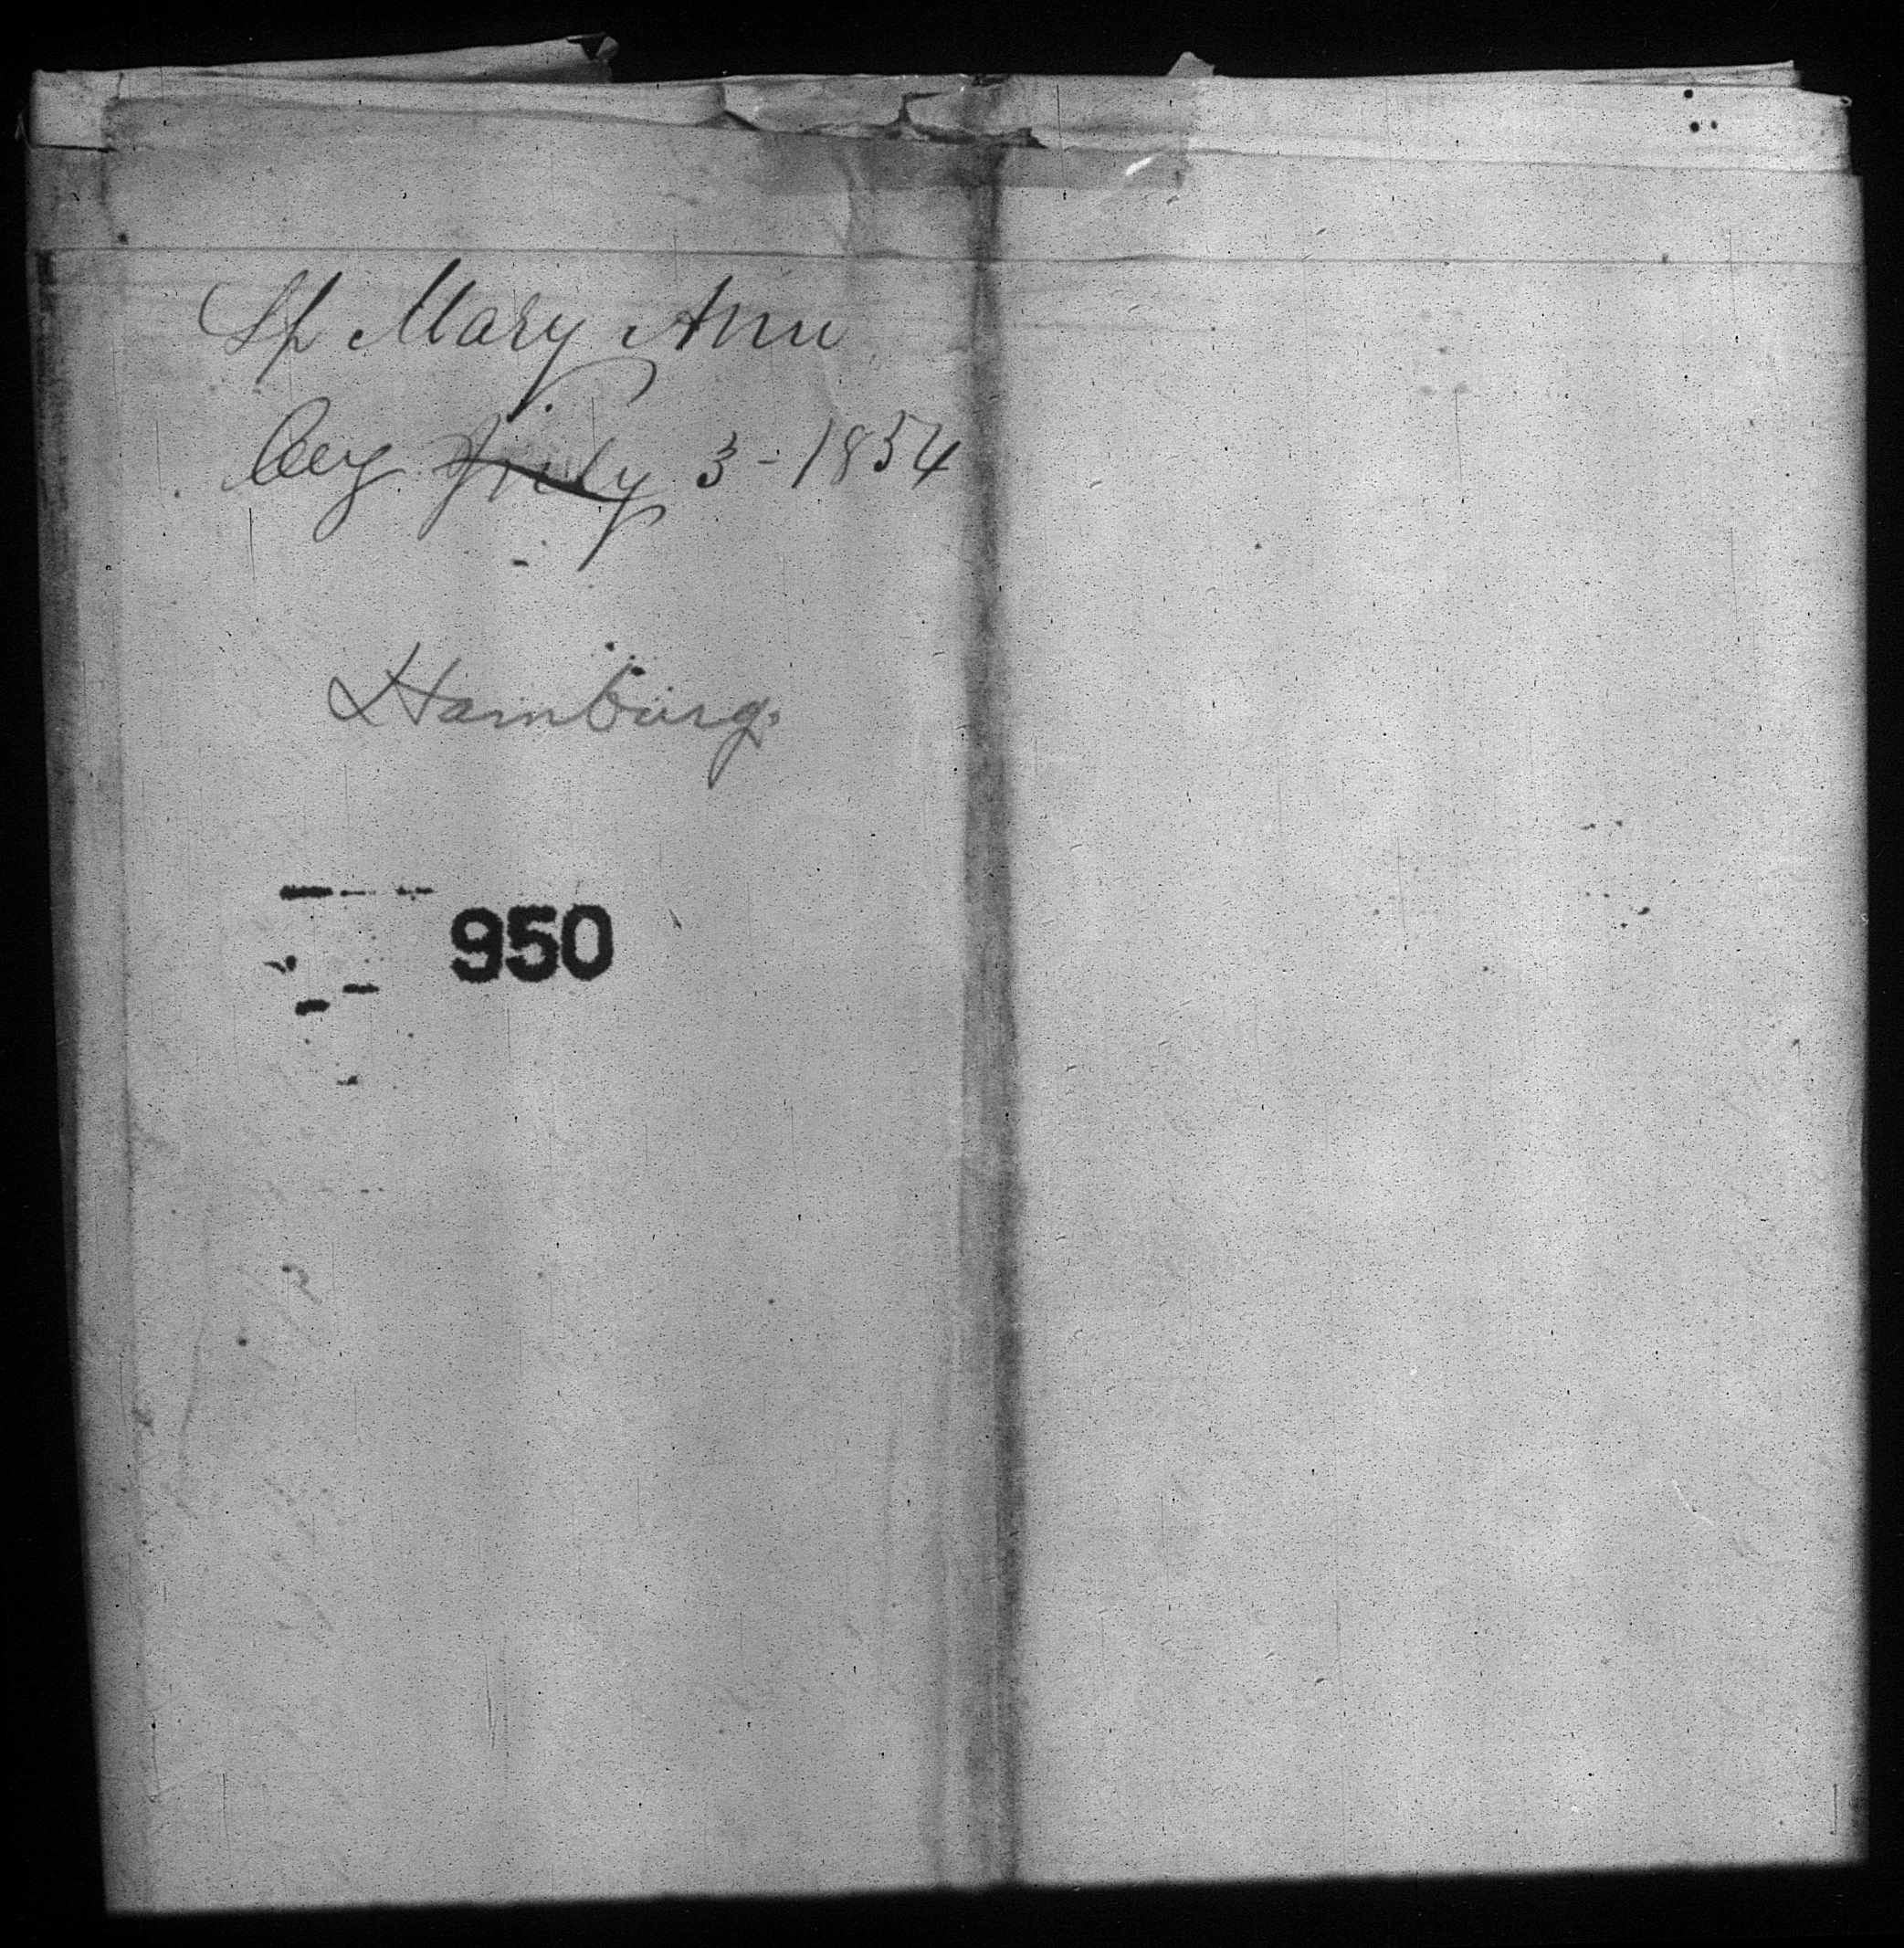 Sp Mary Ann
Aug July 3-1854
Hamburg.
950